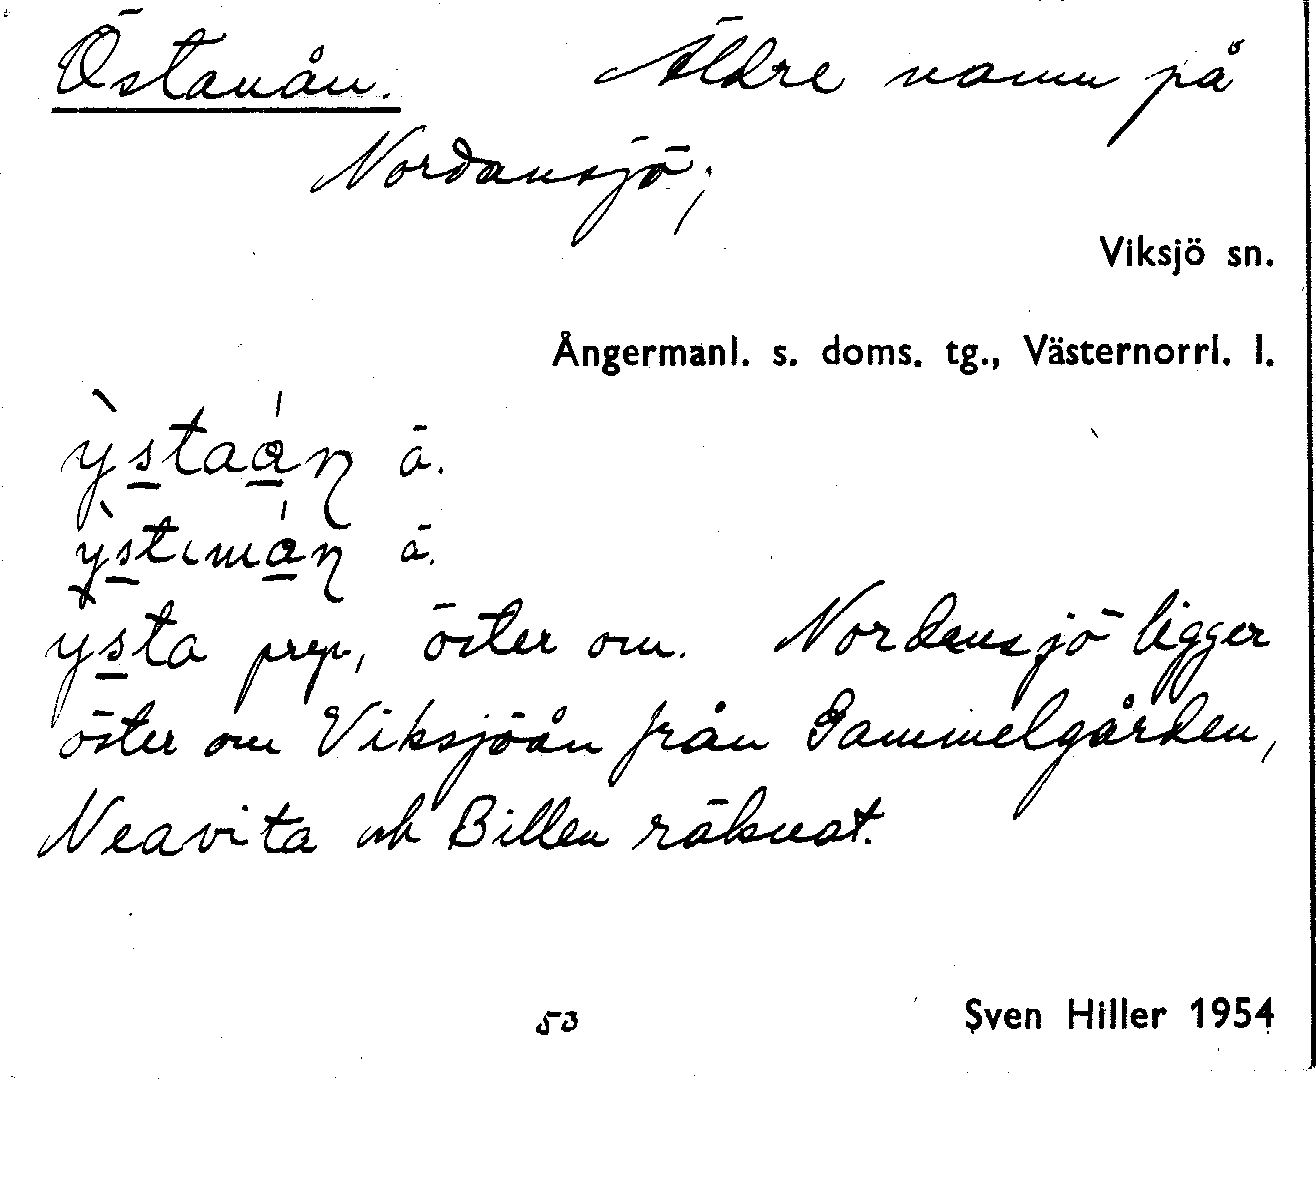 Östanån. Äldre namn på
Nordansjö;
Viksjö sn.
Ångermanl. s. doms. tg., Västernorrl. l.
ỳstaán ā.
ỳstɩmán ā.
ysta prep, öster om. Nordensjö ligger
öster om Viksjöån från Gammelgården,
Neavita och Billen räknat.
53 Sven Hiller 1954